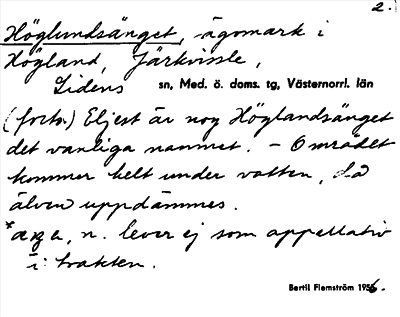 2.
Höglundsänget, ägomark i
Högland, Järkvissle,
Lidens sn, Med. ö. doms. tg, Västernorrl. län
(forts.) Eljest är nog Höglandsänget
det vanliga namnet. – Området
kommer helt under vatten, då
älven uppdämmes.
n. lever ej som appellativ
i trakten.
Bertil Flemström 1956.